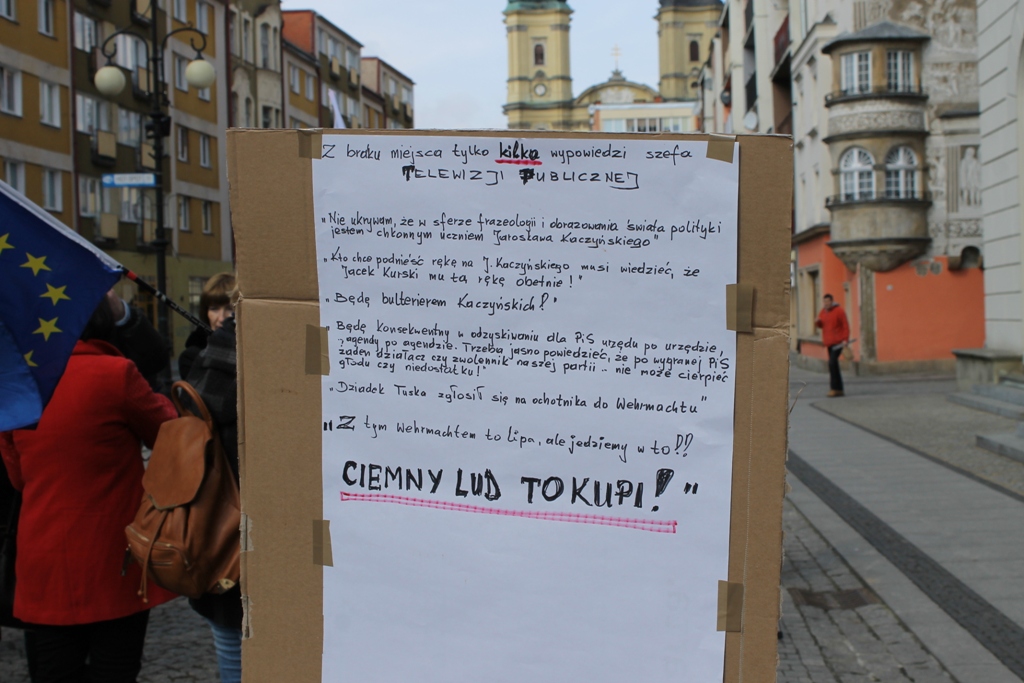 Z braku miejsca tylko kilka wypowiedzi szefa
TELEWIZJI PUBLICZNEJ
„Nie ukrywam, że w sferze frazeologii i obrazowania świata polityki
jestem chłonnym uczniem Jarosława Kaczyńskiego"
„Kto chce podnieść rękę na J. Kaczyńskiego musi wiedzieć, że
Jacek Kurski mu tą rękę obetnie!"
„Będę bulterierem Kaczyńskich!"
„Będę konsekwentny w odzyskiwaniu dla PiS urzędu po urzędzie,
agendy po agendzie. Trzeba jasno powiedzieć, że po wygranej PiS
żaden działacz czy zwolennik naszej partii .. nie może cierpieć
głodu czy niedostatku!"
„Dziadek Tuska zgłosił się na ochotnika do Wehrmachtu"
„Z tym Wehrmachtem to lipa, ale jedziemy w to!!
CIEMNY LUD TO KUPI!"